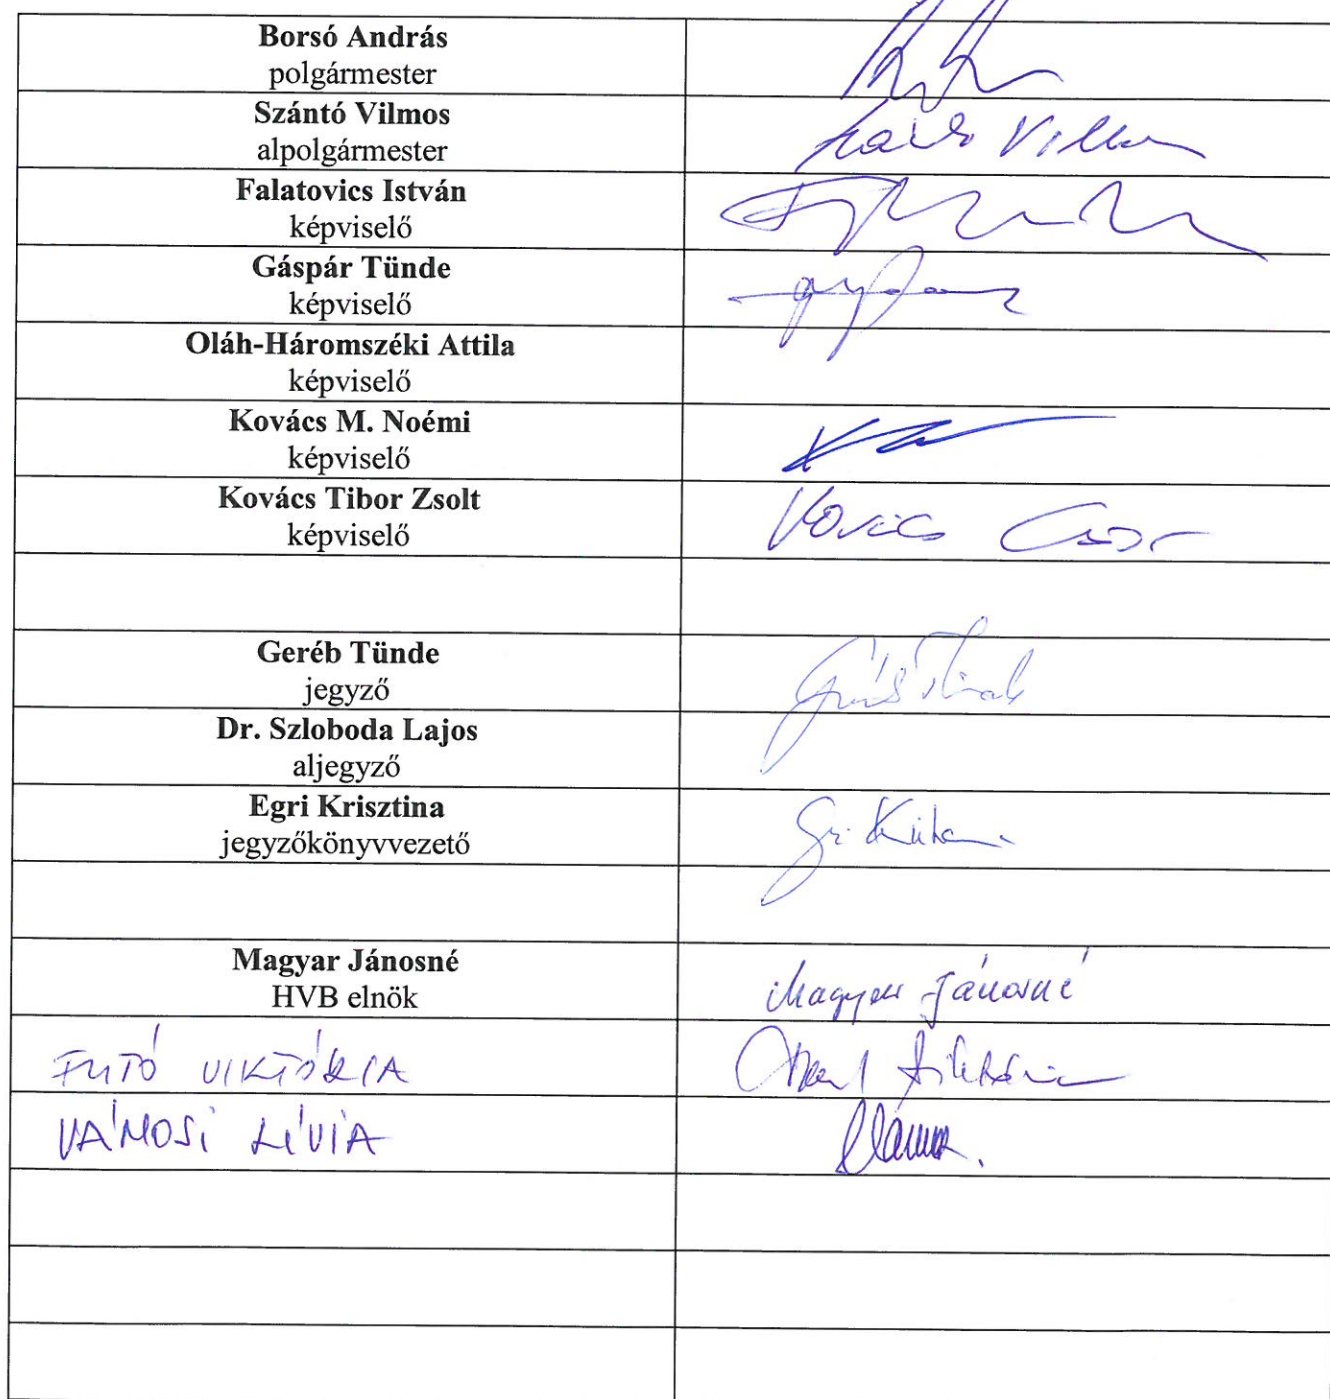 Borsó András
polgármester
Szántó Vilmos
alpolgármester
Falatovics István
képviselő
Gáspár Tünde
képviselő
Oláh-Háromszéki Attila
képviselő
Kovács M. Noémi
képviselő
Kovács Tibor Zsolt
képviselő
Kovács
Geréb Tünde
jegyző
Dr. Szloboda Lajos
aljegyző
Egri Krisztina
jegyzőkönyvvezető
Magyar Jánosné
HVB elnök
Magyar Jánosné
FUTÓ VIKTÓRIA
VÁMOSI LÍVIA